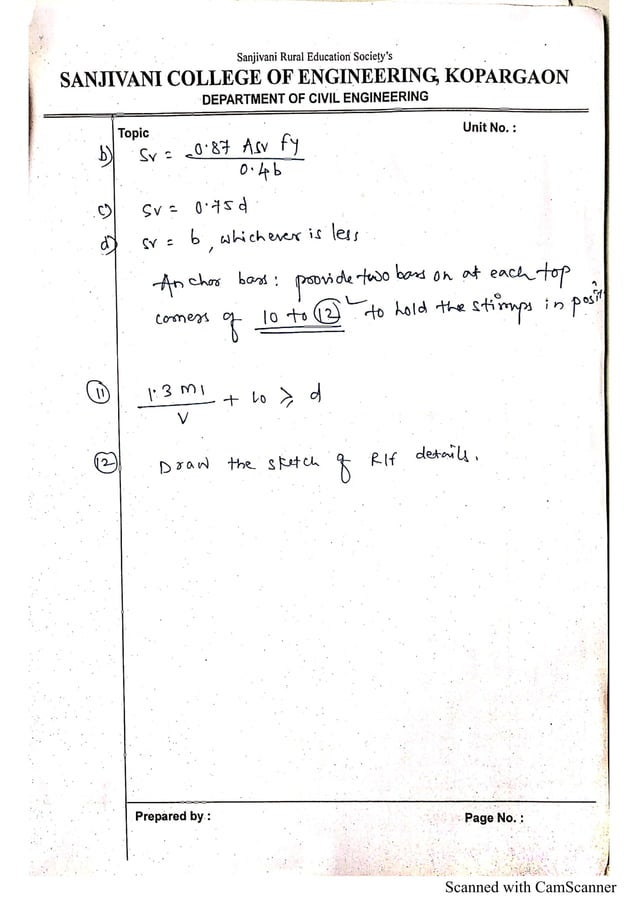 Sanjivani Rural Education Society's
SANJIVANI COLLEGE OF ENGINEERING, KOPARGAON
DEPARTMENT OF CIVIL ENGINEERING
Topic
Unit No. :
b) Sv = 0.87 Asv fy / 0.4b
c) Sv = 0.75d
d) Sv = b, whichever is less
Anchor bars : provide two bars on at each top
corners of 10 to 12 to hold the stirrups in posit
11 1.3 M1 / V + Lo ≥ d
12 Draw the sketch of R/f details.
Prepared by :
Page No. :
Scanned with CamScanner